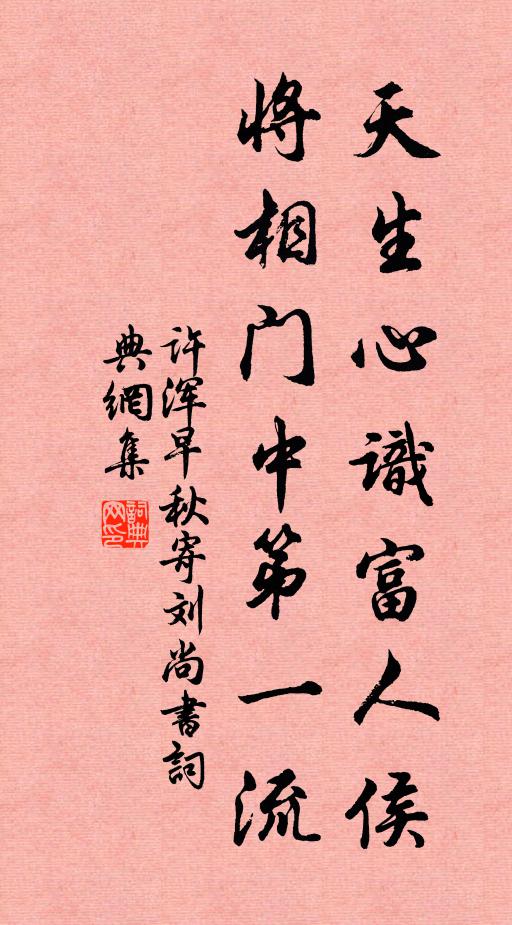 天生心識富人侯
將相門中第一流
许浑早秋寄刘尚書詞
典網集
詞典网印